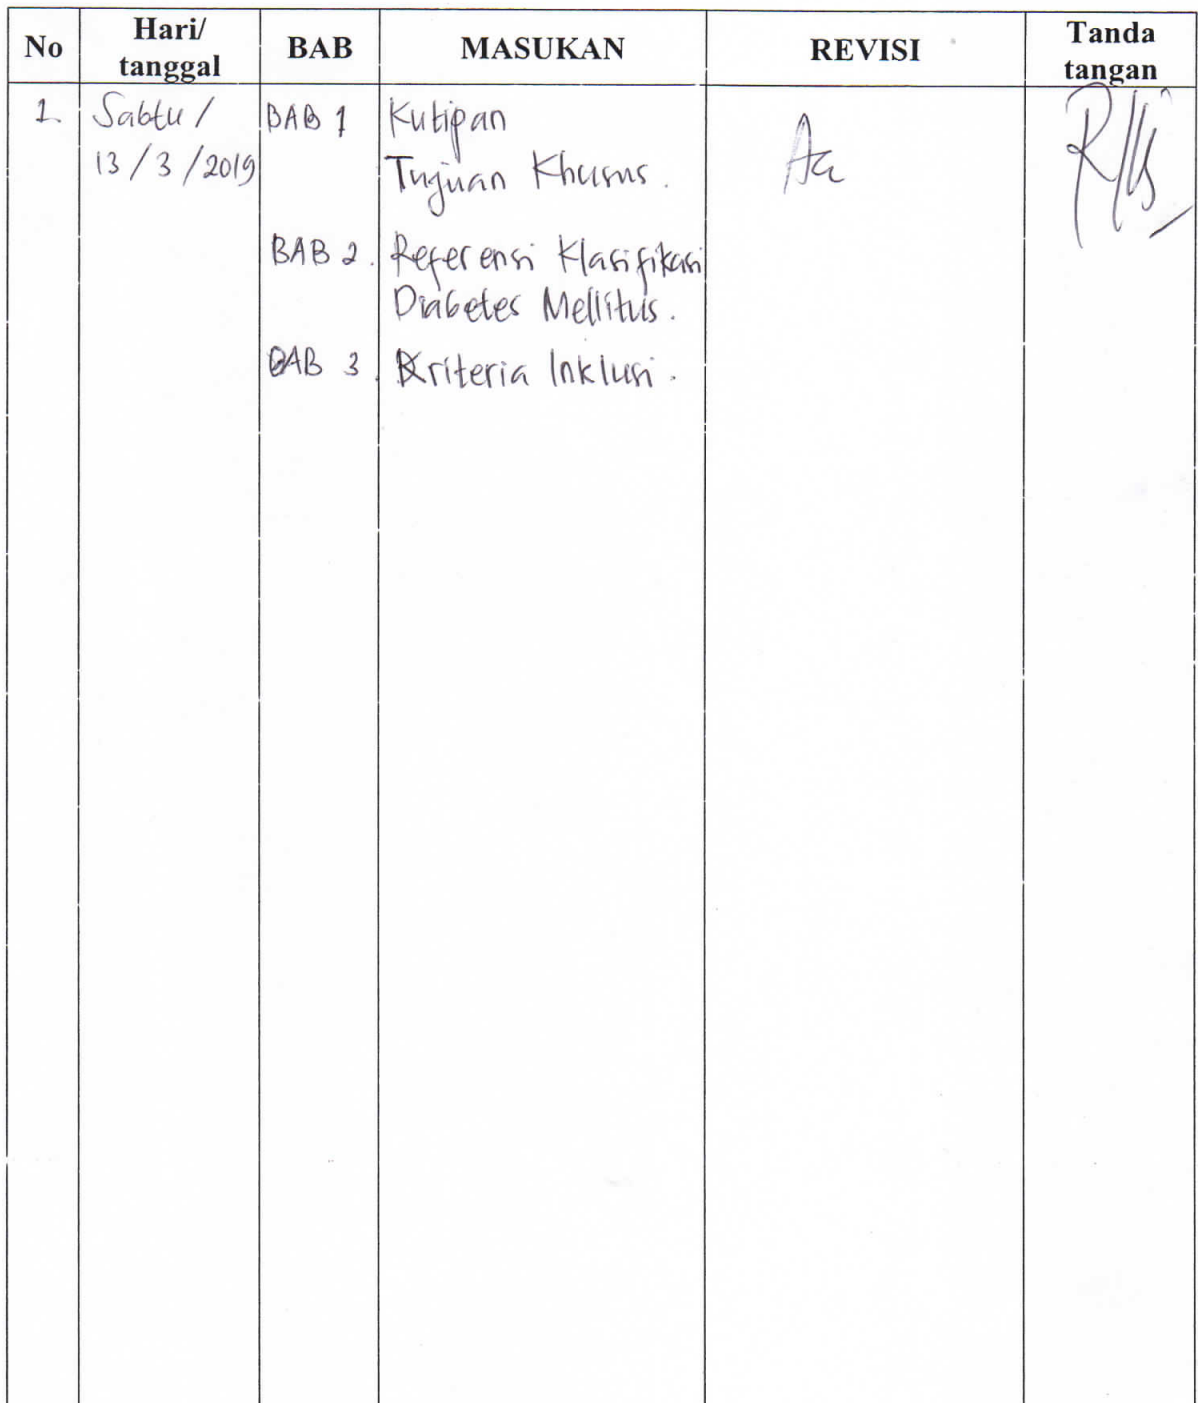 No Hari/ tanggal BAB MASUKAN REVISI Tanda tangan
1. Sabtu / BAB 1 Kutipan
13 / 3 / 2019 Tujuan Khusus.
BAB 2. Referensi Klasifikasi
Diabetes Mellitus.
BAB 3. Kriteria Inklusi.